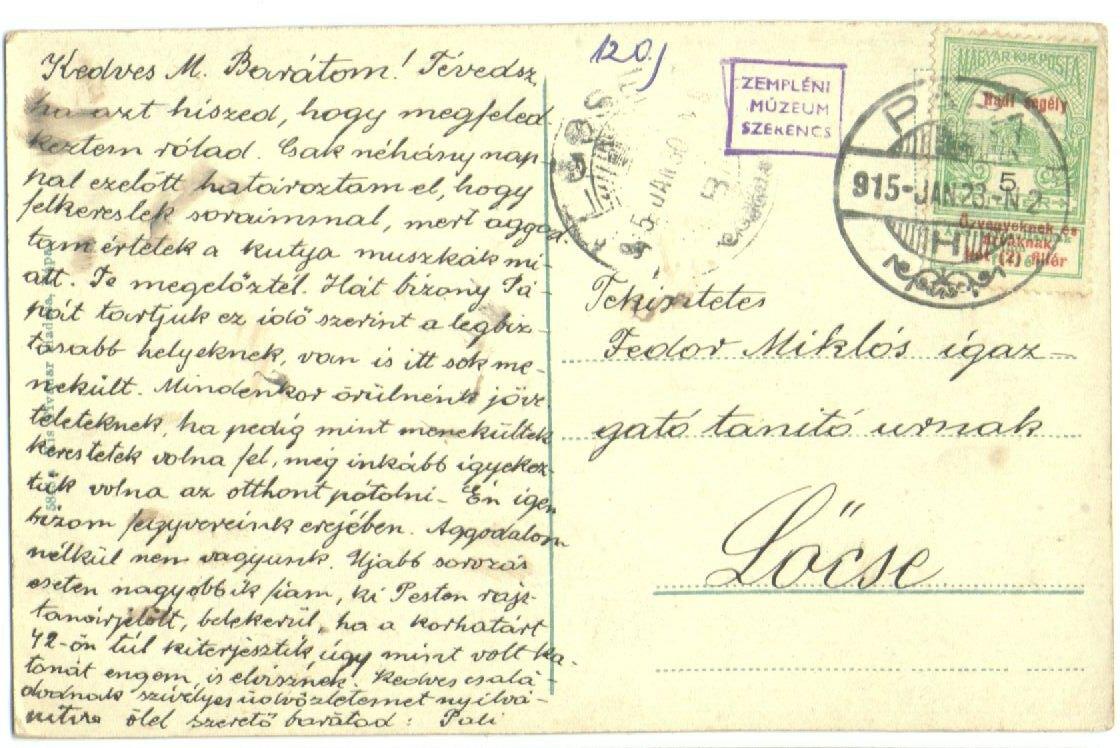 Kedves M. Barátom! Tévedsz,
ha azt hiszed, hogy megfeled
keztem rólad. Csak néhány nap-
pal ezelőtt határoztam el, hogy
felkereslek soraimmal, mert aggód-
tam értetek a kutya muszkák mi-
att. Te megelőztél. Hát bizony Pá-
pát tartjuk ez idő szerint a legbiz-
tosabb helyeknek, van is itt sok me-
nekült. Mindenkor örülnénk jöve
teleteknek, ha pedig mint menekültek
kerestetek volna fel, még inkább igyekez-
tük volna az otthont pótolni. Én igen
bizom fegyvereink erejében. Aggodalom
nélkül nem vagyunk. Ujabb sorozás
esetén nagyobbik fiam, ki Pesten rajz-
tanárjelölt, belekerül, ha a korhatárt
42-ön túl kiterjesztik úgy mint volt ka-
tonát engem is elvisznek. Kedves csalá-
dodnak szivélyes üdvözletemet nyilvá-
nitva ölel szerető barátod: Pali
120)
ZEMPLÉNI
MÚZEUM
SZERENCS
MAGYAR KIR. POSTA
Hadi segély
5
Özvegyeknek és
árváknak
két (2) fillér
915-JAN.23.-N.2
Tekintetes
Fedor Miklós igaz-
gató tanitó urnak
Lőcse